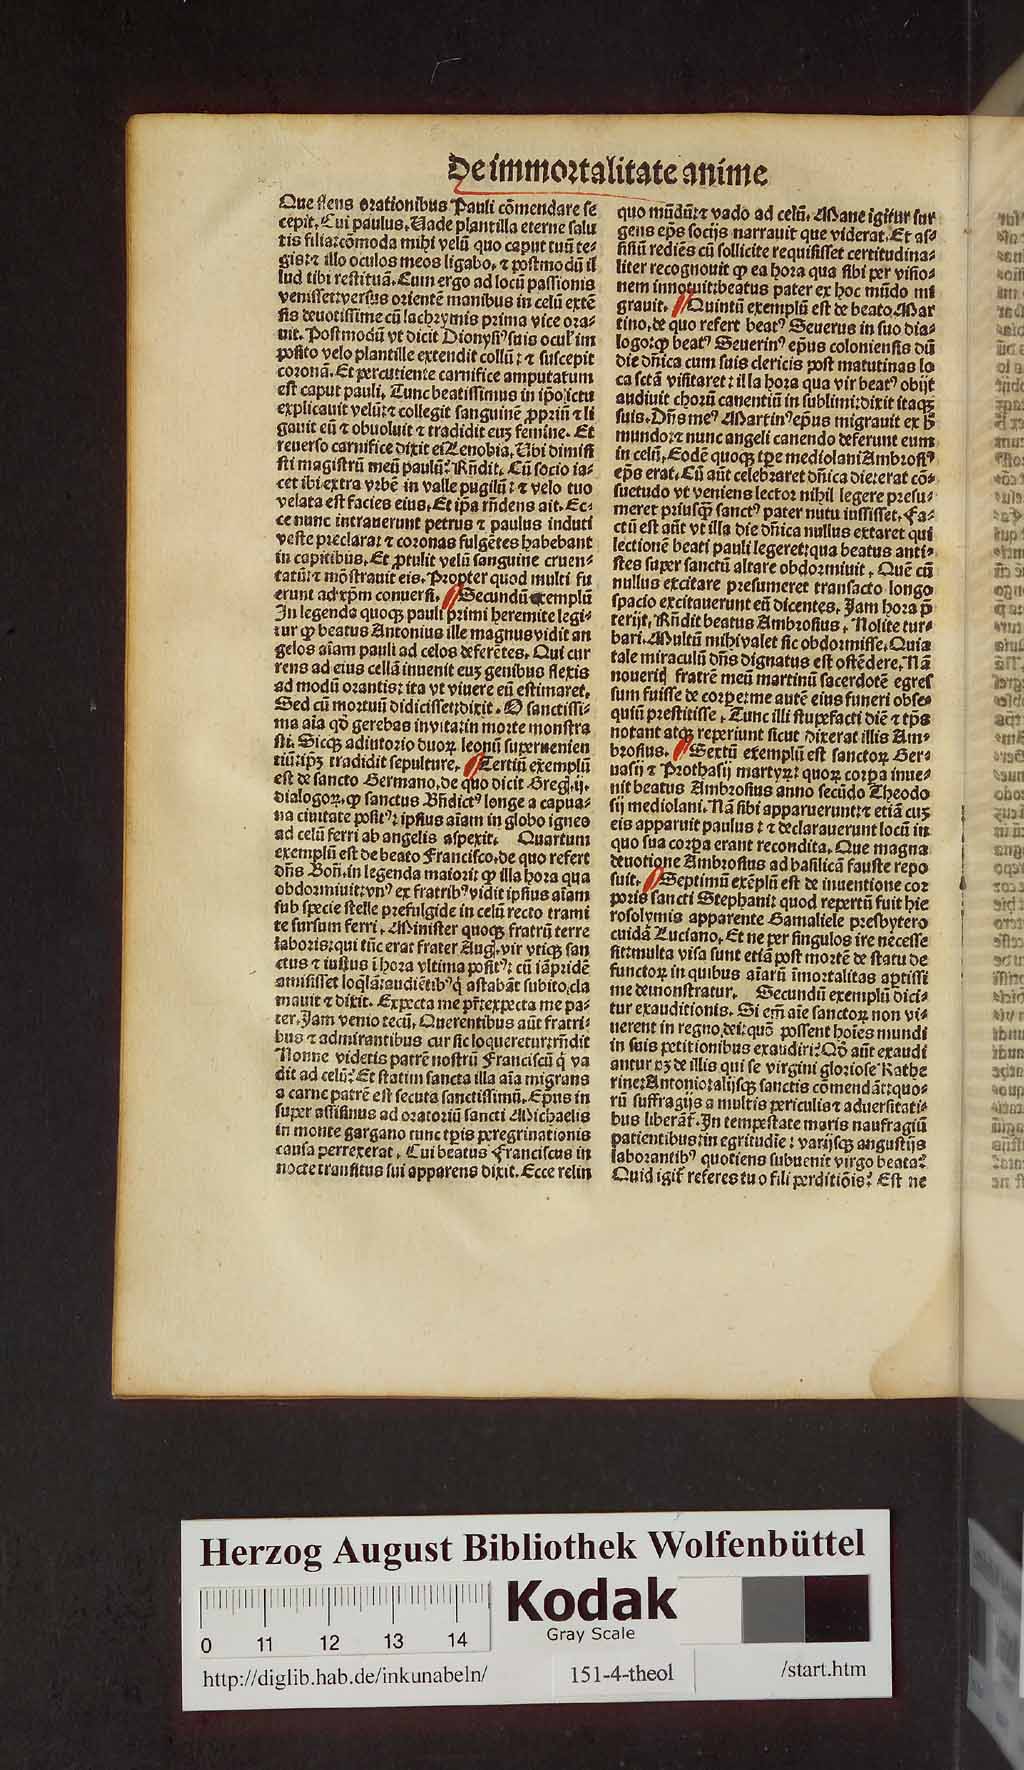 De immortalitate anime
Que flens orationibus Pauli cõmendare se
cepit. Cui paulus. Uade plantilla eterne salu
tis filia: cõmoda mihi velũ quo caput tuũ te⸗
gis: ⁊ illo oculos meos ligabo. ⁊ postmodũ il
lud tibi restituã. Cum ergo ad locũ passionis
venisset: versus orientẽ manibus in celũ extẽ
sis deuotissime cũ lachrymis prima vice ora⸗
uit. Postmodũ vt dicit Dionysiꝰ suis oculꝭ im
posito velo plantille extendit collũ: ⁊ suscepit
coronã. Et percutiente carnifice amputatum
est caput pauli. Tunc beatissimus in ip̃o ictu
explicauit velũ: ⁊ collegit sanguinẽ ꝓpriũ ⁊ li
gauit eũ ⁊ obuoluit ⁊ tradidit euꝫ femine. Et
reuerso carnifice dixit ei Lenobia. Ubi dimisi
sti magistrũ meũ paulũ? Rñdit. Cũ socio ia⸗
cet ibi extra vrbẽ in valle pugilũ: ⁊ velo tuo
velata est facies eius. Et ip̃a rñdens ait. Ec⸗
ce nunc intrauerunt petrus ⁊ paulus induti
veste preclara: ⁊ coronas fulgẽtes habebant
in capitibus. Et ꝓtulit velũ sanguine cruen⸗
tatũ: ⁊ mõstrauit eis. Propter quod multi fu
erunt ad xp̃m conuersi. Secundũ exemplũ
In legenda quoqꝫ pauli primi heremite legi⸗
tur ꝙ beatus Antonius ille magnus vidit an
gelos aĩam pauli ad celos deferẽtes. Qui cur
rens ad eius cellã inuenit euꝫ genibus flexis
ad modũ orantis: ita vt viuere eũ estimaret.
Sed cũ mortuũ didicisset: dixit. O sanctissi⸗
ma aĩa qđ gerebas in vita: in morte monstra
sti. Sicqꝫ adiutorio duoꝝ leonũ superuenien
tiũ: ip̃ꝫ tradidit sepulture. Tertiũ exemplũ
est de sancto Germano, de quo dicit Greg. ij.
dialogoꝝ. ꝙ sanctus Bñdictꝰ longe a capua⸗
na ciuitate positꝰ: ipsius aĩam in globo igneo
ad celũ ferri ab angelis aspexit. Quartum
exemplũ est de beato Francisco, de quo refert
dñs Boñ. in legenda maiori: ꝙ illa hora qua
obdormiuit: vnꝰ ex fratribꝰ vidit ipsius aĩam
sub specie stelle prefulgide in celũ recto trami
te sursum ferri. Minister quoqꝫ fratrũ terre
laboris: qui tũc erat frater Aug. vir vtiqꝫ san
ctus ⁊ iustus ĩ hora vltima positꝰ: cũ iãpridẽ
amisisset loq̃lã: audiẽtibꝰ q̇ astabãt subito, cla
mauit ⁊ dixit. Expecta me pr̃: expecta me pa⸗
ter. Jam venio tecũ. Querentibus aũt fratri⸗
bus ⁊ admirantibus cur sic loqueretur: rñdit
Nonne videtis patrẽ nostrũ Franciscũ q̇ va
dit ad celũ? Et statim sancta illa aĩa migrans
a carne patrẽ est secuta sanctissimũ. Ep̃us in
super assisinus ad oratoriũ sancti Michaelis
in monte gargano tunc tp̃is peregrinationis
causa perrexerat. Cui beatus Franciscus in
nocte transitus sui apparens dixit. Ecce relin
quo mũdũ: ⁊ vado ad celũ. Mane igitur sur
gens ep̃s socijs narrauit que viderat. Et as⸗
sisiũ rediẽs cũ sollicite requisisset certitudina⸗
liter recognouit ꝙ ea hora qua sibi per visio⸗
nem innotuit: beatus pater ex hoc mũdo mi
grauit. Quintũ exemplũ est de beato Mar
tino, de quo refert beatꝰ Seuerus in suo dia⸗
logo: ꝙ beatꝰ Seuerinꝰ ep̃us coloniensis dũ
die dñica cum suis clericis post matutinas lo
ca sctã visitaret: illa hora qua vir beatꝰ obijt
audiuit chorũ canentiũ in sublimi: dixit itaqꝫ
suis. Dñs meꝰ Martinꝰ ep̃us migrauit ex h̃
mundo: ⁊ nunc angeli canendo deferunt eum
in celũ. Eodẽ quoqꝫ tp̃e mediolani Ambrosiꝰ
ep̃s erat. Cũ aũt celebraret dñica die: erat cõ⸗
suetudo vt veniens lector nihil legere presu⸗
meret priusꝙ̃ sanctꝰ pater nutu iussisset. Fa⸗
ctũ est aũt vt illa die dñica nullus extaret qui
lectionẽ beati pauli legeret: qua beatus anti⸗
stes super sanctũ altare obdormiuit. Quẽ cũ
nullus excitare presumeret transacto longo
spacio excitauerunt eũ dicentes. Jam hora p̃
terijt. Rñdit beatus Ambrosius. Nolite tur⸗
bari. Multũ mihi valet sic obdormisse. Quia
tale miraculũ dñs dignatus est ostẽdere. Nã
noueritꝭ fratrẽ meũ martinũ sacerdotẽ egres
sum fuisse de corpe: me autẽ eius funeri obse⸗
quiũ prestitisse. Tunc illi stupefacti diẽ ⁊ tp̃s
notant atqꝫ reperiunt sicut dixerat illis Am⸗
brosius. Sextũ exemplũ est sanctoꝝ Ger⸗
uasij ⁊ Prothasij martyꝝ: quoꝝ corpa inue⸗
nit beatus Ambrosius anno secũdo Theodo
sij mediolani. Nã sibi apparuerunt: ⁊ etiã cuꝫ
eis apparuit paulus: ⁊ declarauerunt locũ in
quo sua corpa erant recondita. Que magna
deuotione Ambrosius ad basilicã fauste repo
suit. Septimũ exẽplũ est de inuentione cor
poris sancti Stephani: quod repertũ fuit hie
rosolymis apparente Gamaliele presbytero
cuidã Luciano. Et ne per singulos ire necesse
sit: multa visa sunt etiã post mortẽ de statu de
functoꝝ in quibus aĩarũ ĩmortalitas aptissi
me demonstratur. Secundũ exemplũ dici⸗
tur exauditionis. Si em̃ aĩe sanctoꝝ non vi⸗
uerent in regno dei: quõ possent hoĩes mundi
in suis petitionibus exaudiri? Qđ aũt exaudi
antur pꝫ de illis qui se virgini gloriose Kathe
rine: Antonio: alijsqꝫ sanctis cõmendãt: quo⸗
rũ suffragijs a multis periculis ⁊ aduersitati⸗
bus liberãt᷑. In tempestate maris naufragiũ
patientibus: in egritudĩe: varijsqꝫ angustijs
laborantibꝰ quotiens subuenit virgo beata?
Quid igit᷑ referes tu o fili perditiõis? Est ne
Herzog August Bibliothek Wolfenbüttel
Kodak
Gray Scale
0 11 12 13 14
http://diglib.hab.de/inkunabeln/
151-4-theol
/start.htm